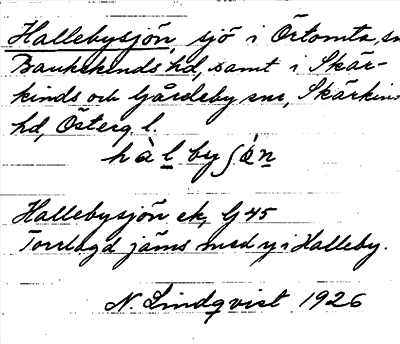 Hallebysjön, sjö i Örtomta sn
Bankekinds hd, samt i Skär-
kinds och Gårdeby snr, Skärkin
hd, Österg. l.
hàl by ʃǿn
Hallebysjön ek, G 45
Torrlagd jäms med y i Halleby.
N. Lindqvist 1926